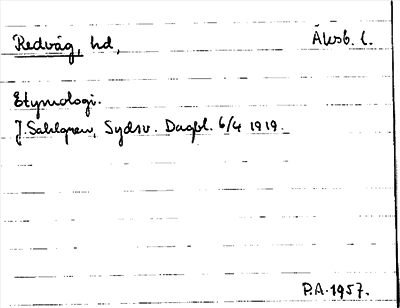 Redväg, hd, Älvsb. l.
Etymologi.
J. Sahlgren, Sydsv. Dagbl. 6/4 1919.
P.A. 1957.